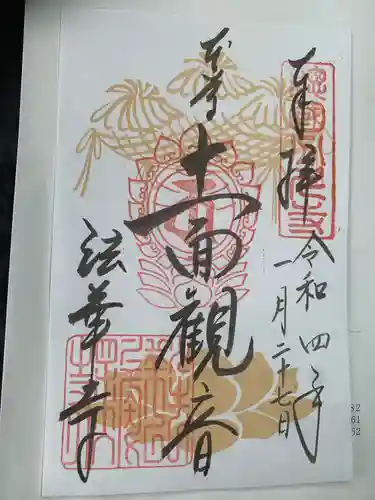 奉拝
令和四年
一月二十七日
本尊
十一面観音
法華寺
82
61
52